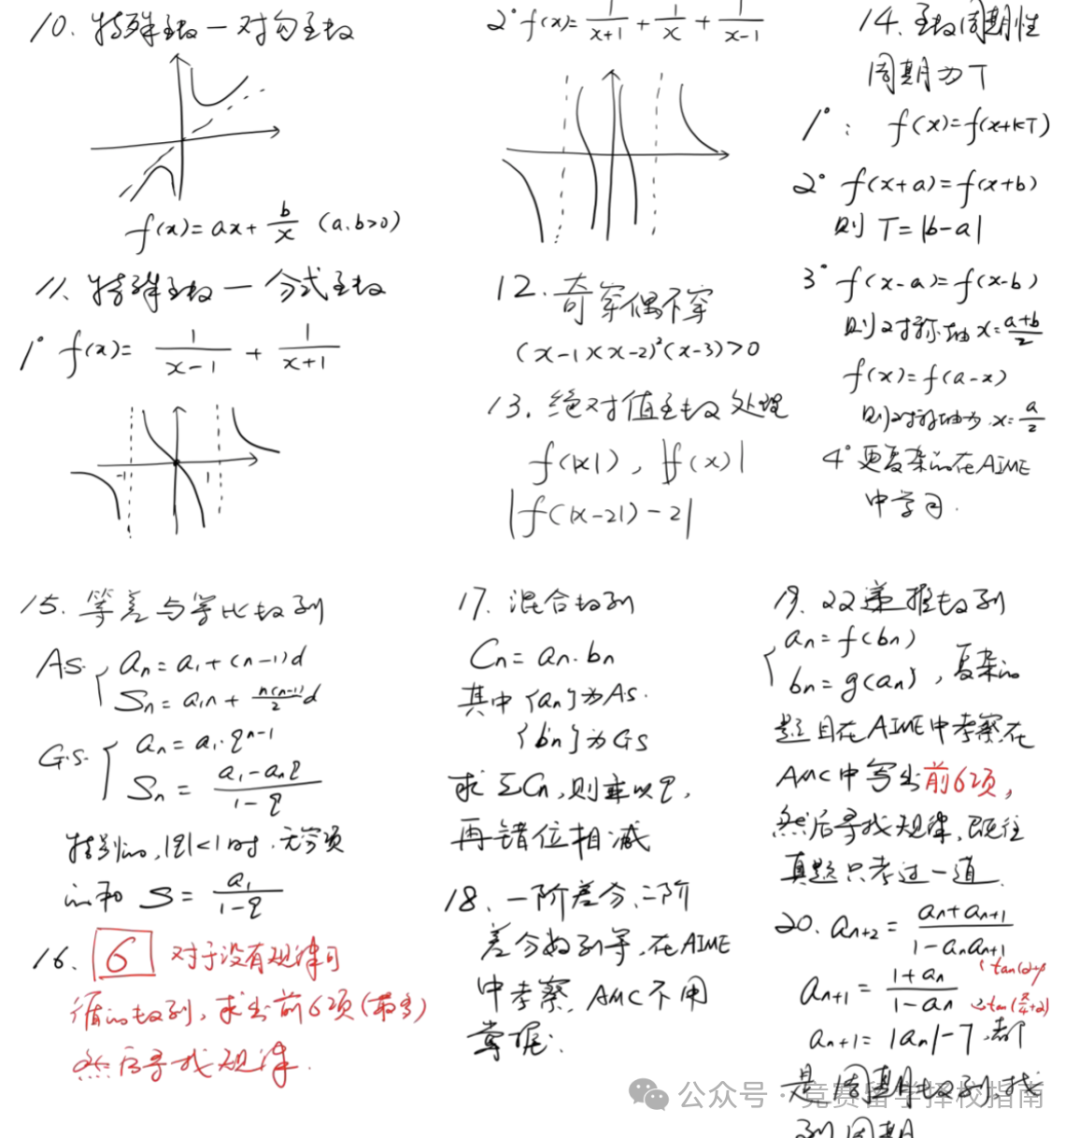 10. 特殊函数—对勾函数
f(x)= ax+ b/x (a.b>0)
11. 特殊函数—分式函数
1° f(x)= 1/(x-1) + 1/(x+1)
-1 1
2° f(x)= 1/(x+1) + 1/x + 1/(x-1)
12. 奇穿偶不穿
(x-1)(x-2)²(x-3)>0
13. 绝对值函数处理
f(|x|), |f(x)|
|f(|x-2|)-2|
14. 函数周期性
周期为T
1°: f(x)=f(x+kT)
2° f(x+a)=f(x+b)
则 T=|b-a|
3° f(x-a)=f(x-b)
则对称轴 x=(a+b)/2
f(x)=f(a-x)
则对称轴为 x=a/2
4° 更复杂的在AIME
中学习.
15. 等差与等比数列
A.S. an=a1+(n-1)d
Sn=a1n+ n(n-1)/2 d
G.S. an=a1·q^(n-1)
Sn= (a1-anq)/(1-q)
特别的,|q|<1时.无穷项
的和 S= a1/(1-q)
16. 6 对于没有规律可
循的数列,求出前6项(最多)
然后寻找规律.
17. 混合数列
Cn=an.bn
其中{an}为A.S.
{bn}为GS
求ΣCn,则乘以q,
再错位相减
18. 一阶差分、二阶
差分数列等,在AIME
中考察,AMC不用
掌握.
19. 22递推数列
an=f(bn)
bn=g(an), 复杂的
题目在AIME中考察在
AMC中写出前6项,
然后寻找规律,既往
真题只考过一道.
20. an+2= (an+an+1)/(1-anan+1)
an+1= (1+an)/(1-an)
an+1=|an|-7,都
是周期数列,找
到周期
公众号·竞赛留学择校指南